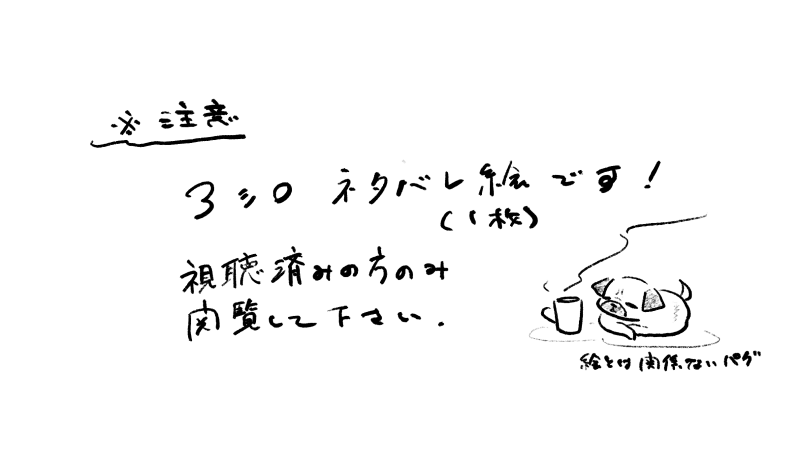 ※ 注意
3ミロ ネタバレ絵です!
(1枚)
視聴済みの方のみ
閲覧して下さい.
絵とは関係ないパグ